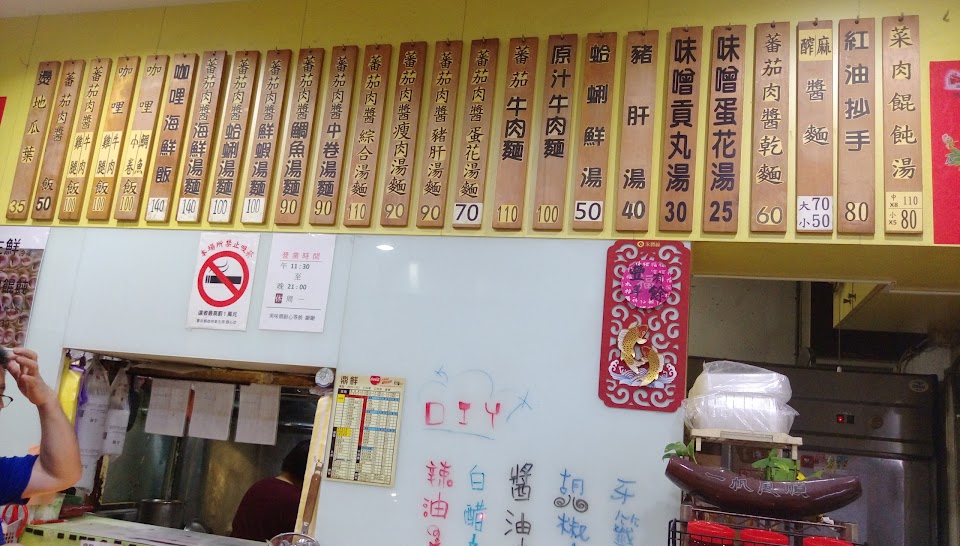 菜肉餛飩湯
中 110
X8
小 80
X5
紅油抄手 80
麻醡醬麵
大 70
小 50
蕃茄肉醬乾麵 60
味噌蛋花湯 25
味噌貢丸湯 30
豬肝湯 40
蛤蜊鮮湯 50
原汁牛肉麵 100
蕃茄牛肉麵 110
蕃茄肉醬蛋花湯麵 70
蕃茄肉醬豬肝湯麵 90
蕃茄肉醬瘦肉湯麵 90
蕃茄肉醬綜合湯麵 110
蕃茄肉醬中卷湯麵 90
蕃茄肉醬鯛魚湯麵 90
蕃茄肉醬鮮蝦湯麵 100
蕃茄肉醬蛤蜊湯麵 100
蕃茄肉醬海鮮湯麵 140
咖哩海鮮飯 140
咖哩鯛魚中卷飯 100
咖哩牛肉雞腿飯 100
蕃茄肉醬牛肉雞腿飯 100
蕃茄肉醬飯 50
燙地瓜葉 35
本場所禁止吸菸
營業時間
午 11:30
至
晚 21:00
休 周一
鼎鮮
DIY
辣油
白醋
醬油
胡椒
牙籤
一帆風順